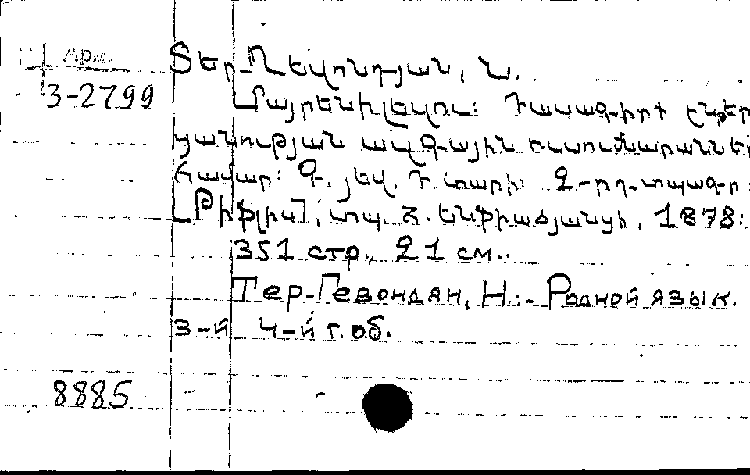 Арм.
3-2799
Տեր-Ղեվոնդյան, Ն.
Մայրենի լեզու: Դասագիրք ընթեր
ցանության ազգային ուսումնարաննե
համար: Գ. յեվ. Դ տարի: 2-րդ. տպագր:
[Թիֆլիս], տպ. Հ. Ենֆիաճյանցի, 1878:
351 стр., 21 см..
Тер-Гевондян, Н.:- Родной язык.
3-й 4-й г. об.
8885